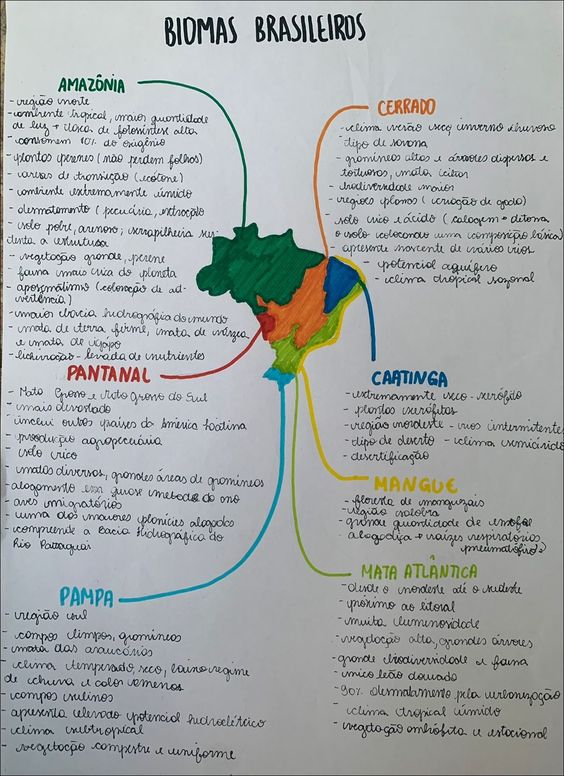 BIOMAS BRASILEIROS
AMAZÔNIA
- região norte
- ambiente tropical, maior quantidade
de luz + taxa de fotossíntese alta
- consomem 90% do oxigênio
- plantas perenes (não perdem folhas)
- áreas de transição (ecótone)
- ambiente extremamente úmido
- desmatamento (pecuária, extração
- solo pobre, arenoso; serrapilheira
a estrutura
- vegetação grande, perene
- fauna mais rica do planeta
- aposematismo (coloração de ad-
vertência)
- maior bacia hidrográfica do mundo
- mata de terra firme, mata de várzea
e mata de igapó
- lixiviação - levada de nutrientes
PANTANAL
- Mato Grosso e Mato Grosso do Sul
- mais devastado
- inclui outros países da América Latina
- produção agropecuária
- solo rico
- matas diversas, grandes áreas de gramíneas
- alagamento em quase metade do ano
- aves migratórias
- uma das maiores planícies alagadas
- compreende a bacia hidrográfica do
Rio Paraguai
PAMPA
- região sul
- campos limpos, gramíneas
- mata das araucárias
- clima temperado, seco, baixo regime
de chuva e calor amenos
- campos sulinos
- apresenta elevado potencial hidroelétrico
- clima subtropical
- vegetação campestre e uniforme
CERRADO
- clima verão seco inverno chuvoso
- tipo de savana
- gramíneas altas e árvores dispersas e
tortuosas, mata
- biodiversidade maior
- regiões planas (criação de gado)
- solo rico e ácido (calagem =
o solo colocando uma composição básica)
- apresenta nascente de vários rios
- potencial aquífero
- clima tropical sazonal
CAATINGA
- extremamente seco - xerófilo
- plantas xerófitas
- região nordeste - rios intermitentes
- tipo de deserto - clima semiárido
- desertificação
MANGUE
- floresta de manguezais
- região salobra
- grande quantidade de
- alagadiça + raízes respiratórias
pneumatóforo
MATA ATLÂNTICA
- desde o nordeste até o sudeste
- próximo ao litoral
- muita luminosidade
- vegetação alta, grandes árvores
- grande biodiversidade e fauna
- mico leão dourado
- 90% desmatamento pela urbanização
- clima tropical úmido
- vegetação ombrófita e estacional